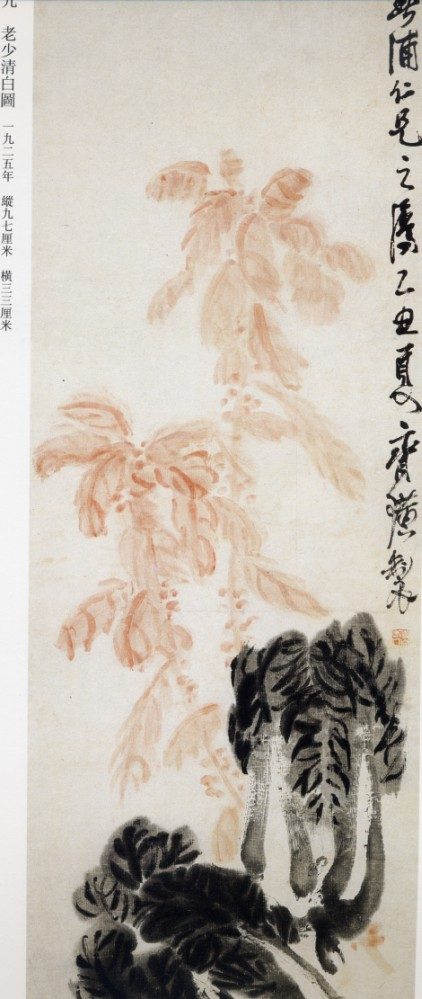 九 老少清白圖 一九二五年 縱九七厘米 橫三三厘米
浦仁兄之屬乙丑夏齊璜製